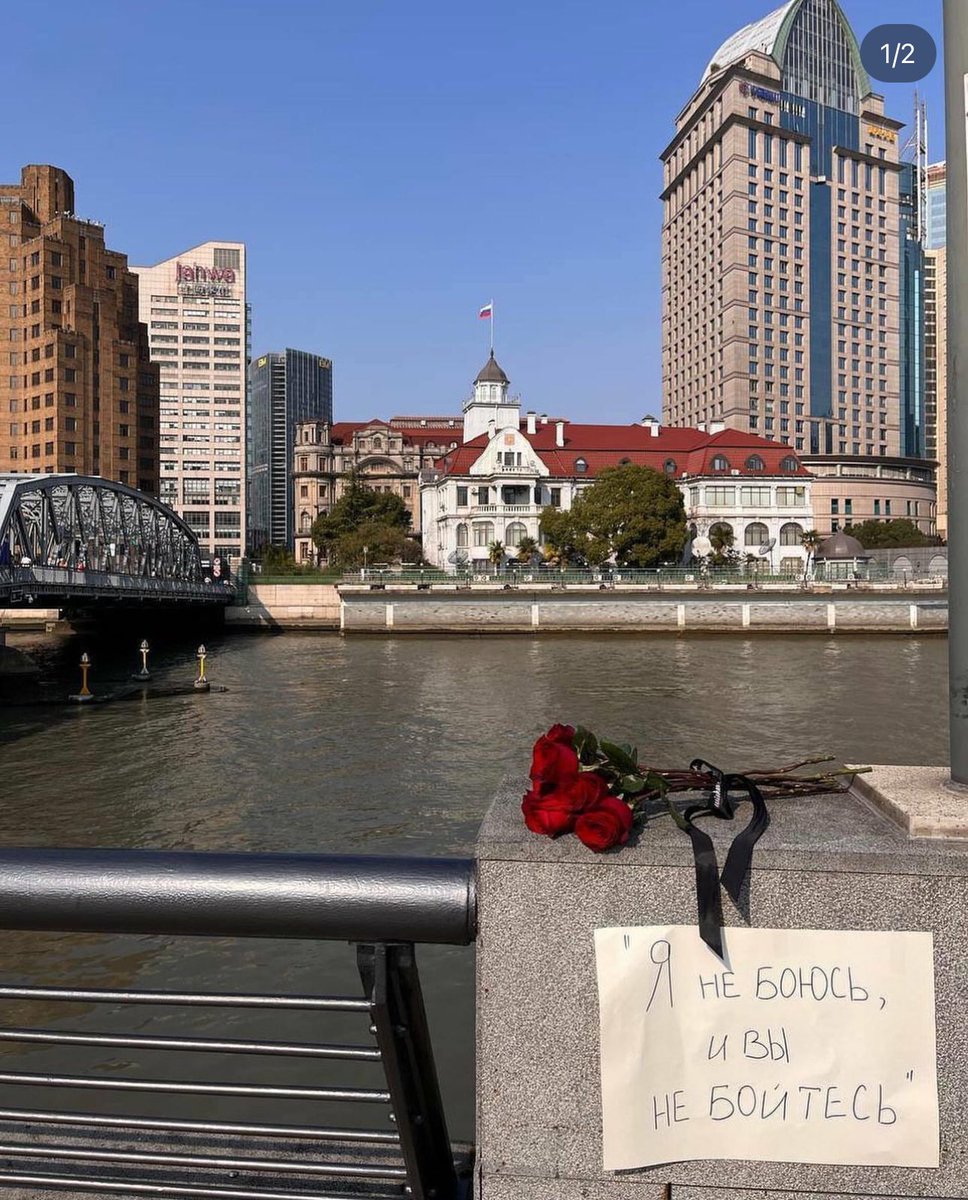 1/2
Jahwa
"Я НЕ БОЮСЬ,
И ВЫ
НЕ БОЙТЕСЬ"